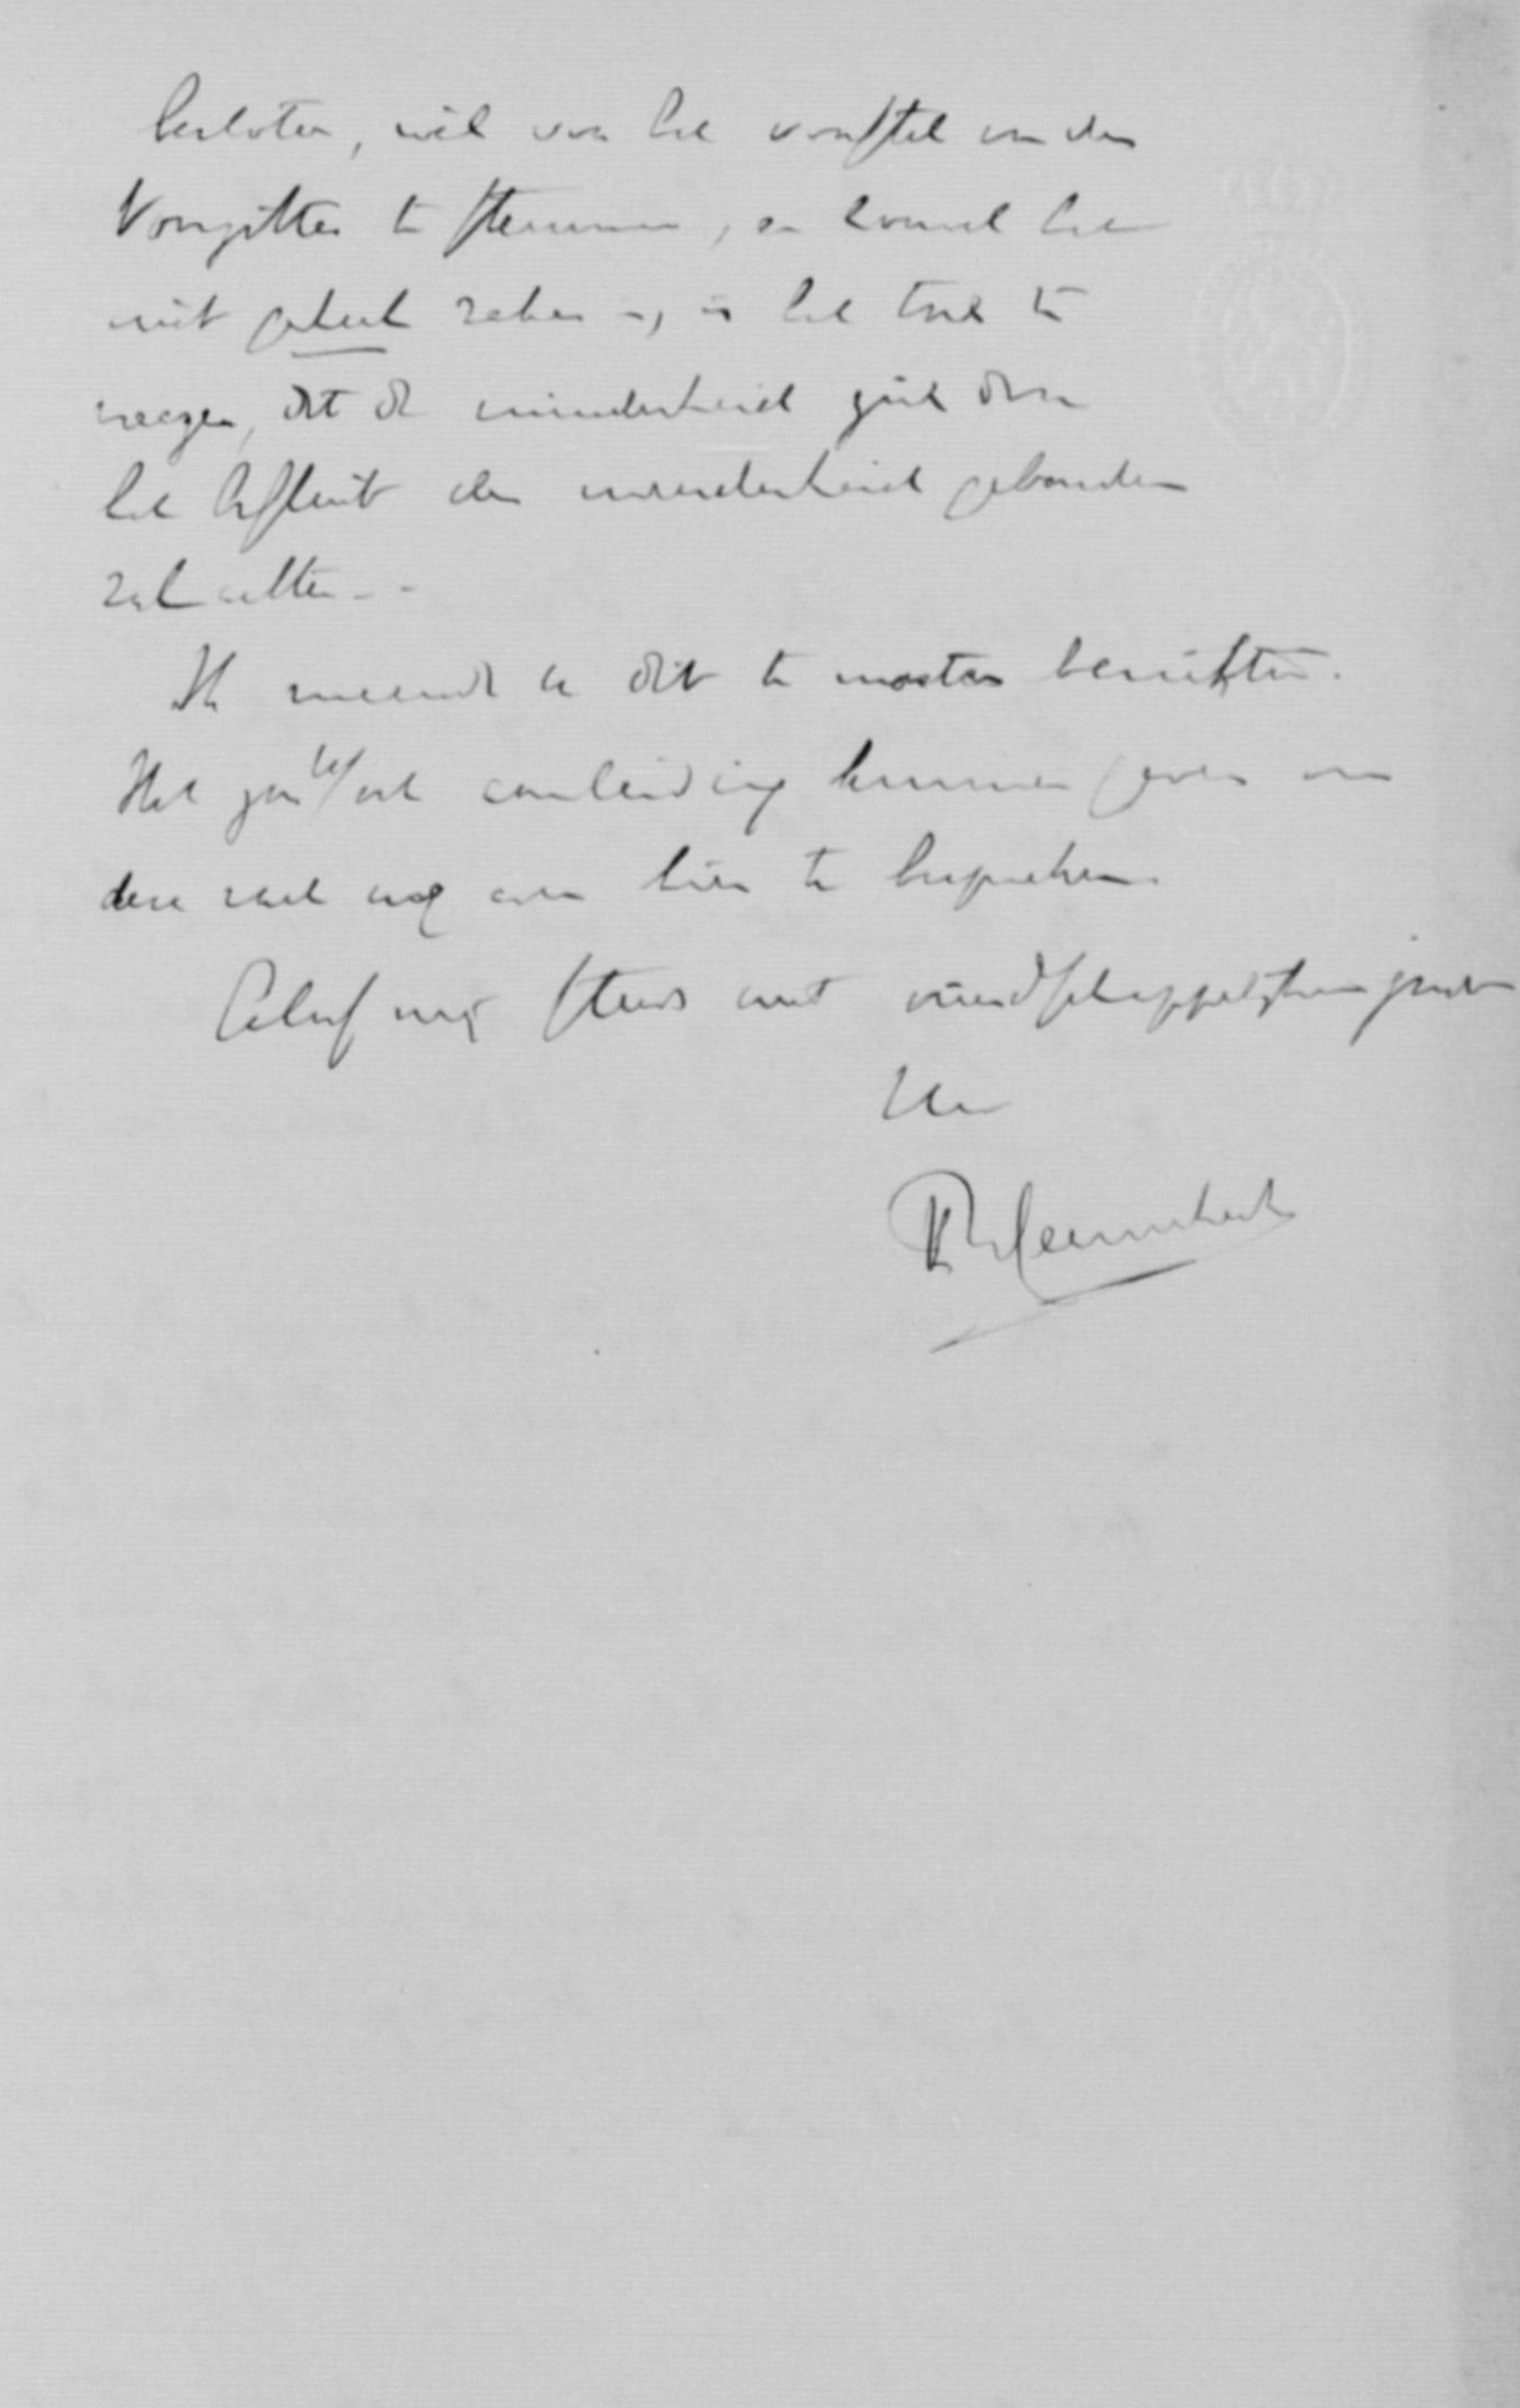 besloten, wel voor het voorstel van den
Voorzitter te stemmen, en hoewel het
niet geheel zeker is, is het toch te
vreezen, dat de minderheid zich door
het besluit der meerderheid gebonden
zal achten.
Ik meende u dit te moeten berichten.
Het zou U/ook aanleiding kunnen geven om
deze zaak nog eens hier te bespreken.
Geloof mij steeds met vriendschappelijken groet
Uw